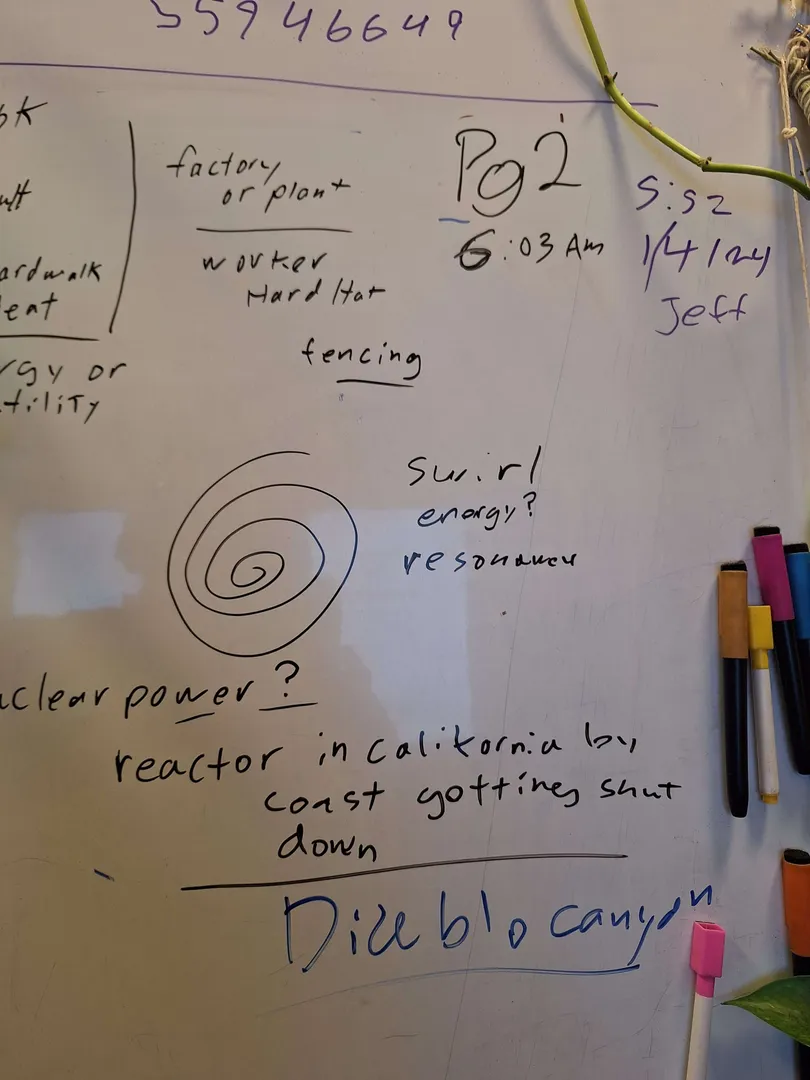 55946649
factory
or plant
worker
Hard Hat
fencing
Pg2
6:03 Am
5:52
1/4/24
Jeff
ardwalk
rgy or
tility
swirl
energy?
resonance
clear power?
reactor in california by
coast gotting shut
down
Diablo canyon